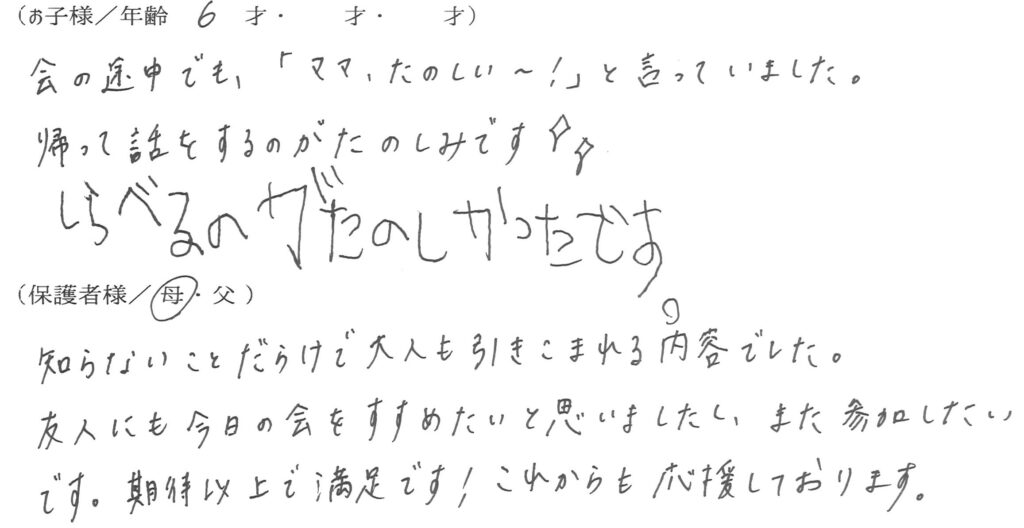 （お子様／年齢　6　才・　　才・　　才）
会の途中でも、「ママ、たのしい〜！」と言っていました。
帰って話をするのがたのしみです
しらべるのがたのしかったです。
（保護者様／母・父）
知らないことだらけで大人も引きこまれる内容でした。
友人にも今日の会をすすめたいと思いましたし、また参加したい
です。期待以上で満足です！これからも応援しております。